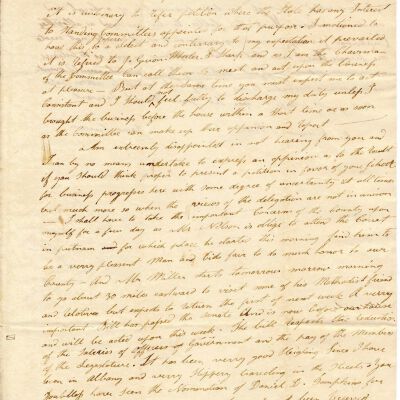 it is necessary to refer petition where the State has any Interest
to Standing Committees appointed for that purpose. I motioned to
have this to a select and contrary to my expectation it prevailed
it is referred to Wheeler & Sharp and as I am the Chairman
of the Committee can call them to meet and act upon the business
at pleasure — But at the same time you must expect me to act
Consistant and I should feel guilty to discharge my duty unless I
brought the business before the house within a short time or as soon
as the Committee can make up their oppinion and report
I am extremely disappointed in not hearing from you and
Can by no means undertake to express an oppeneon as to the result
if you should think proper to present a petition in favor of your
for business progresses here with some degree of uncertainty at all times
but much more so when the voices of the deligation are not in unison
I shall have to take the important Concerns of the County upon
myself for a few days as Mr Nelson is oblige to attend the Court
in putnam for which place he starts this morning find him to
be a very plesent Man and bids fair to do much honor to our
County — And Mr Miller starts tomorrow morning
to go about 30 miles eastward to visit some of his Methodist friend
and relatives but expects to return the first of next week A verry
important Bill has passed the senate And is now before our house
and will be acted upon this week. The bill respects the reduction
of the Saleries of officers of Government and the pay of the Members
of the Legeslature. It has been verry good Sleighing Since I have
been in Albany and verry Slippery traveling in the Streets. You
doubtless have seen the Nomination of Daniel D. Tompkins for